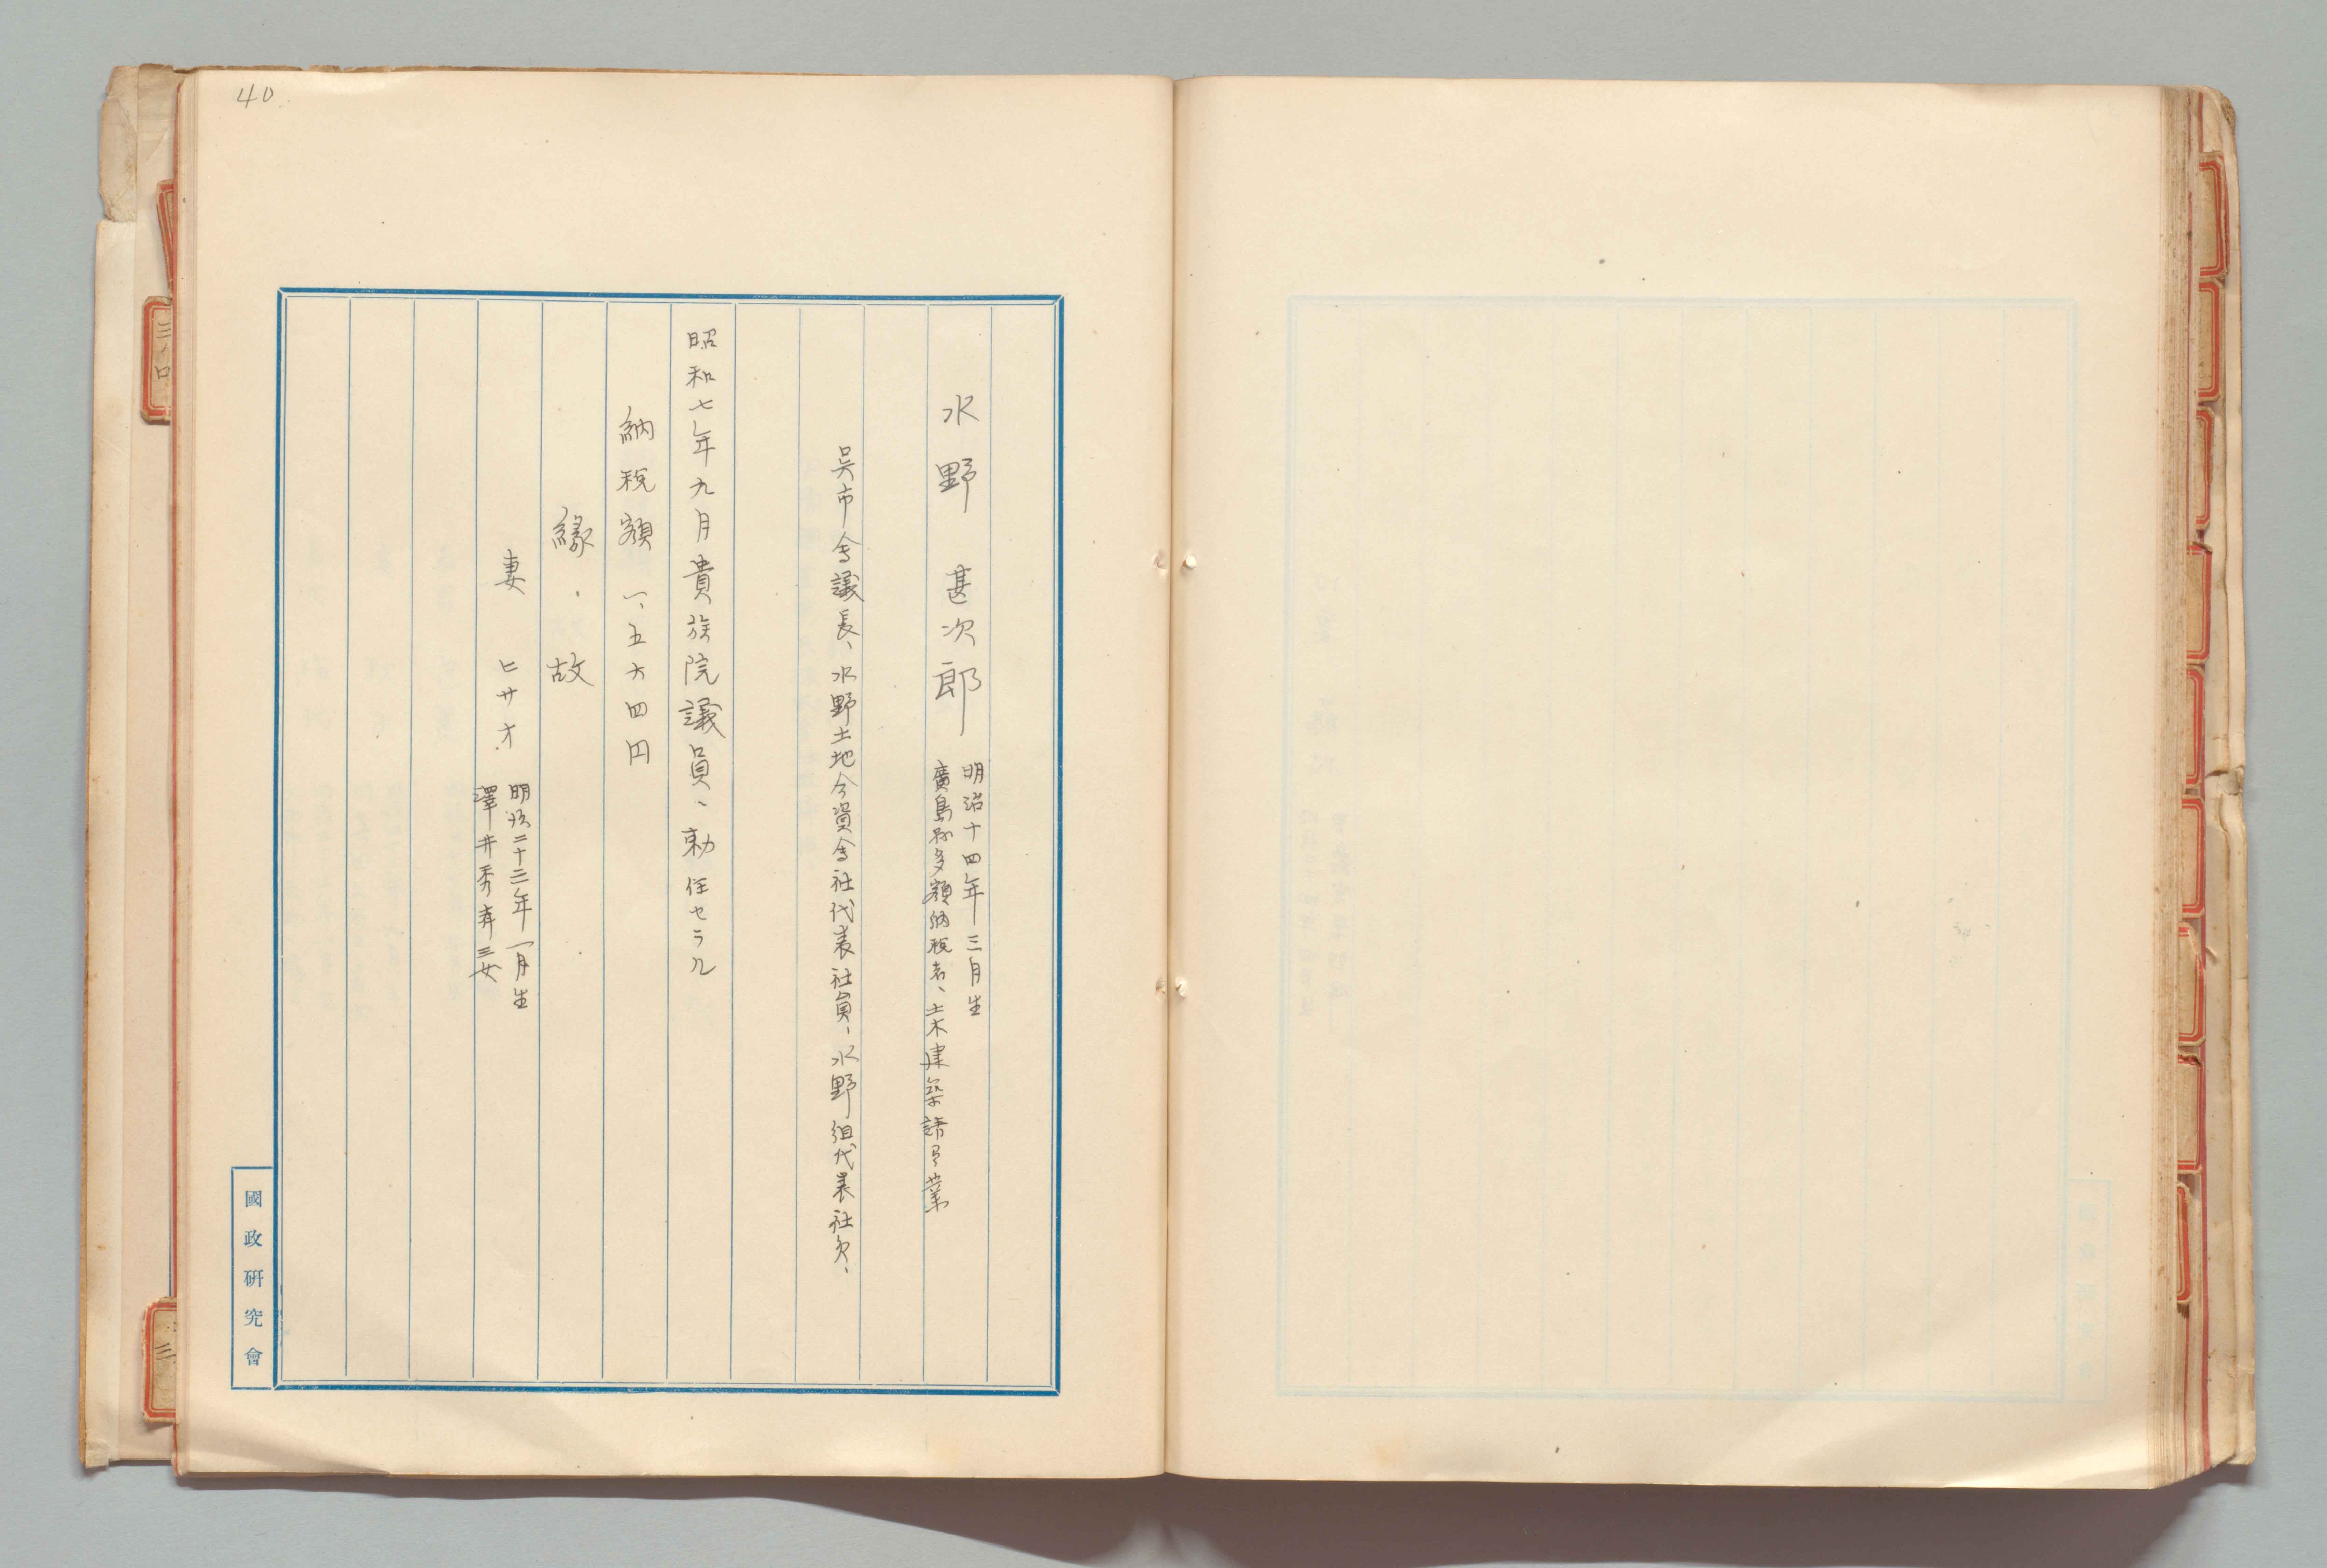 40
水野 甚次郎
明治十四年三月生
廣島縣多額納税者、土木建築請負業
呉市会議長、水野土地合資会社代表社員、水野組代表社員、
昭和七年九月貴族院議員、勅任セラル
納税額 一、五六四円
緣故
妻 ヒサオ
明治二十三年一月生
澤井秀 三女
國政研究會
三ノ口
三